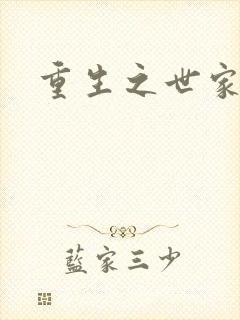 重生之世家
藍家三少